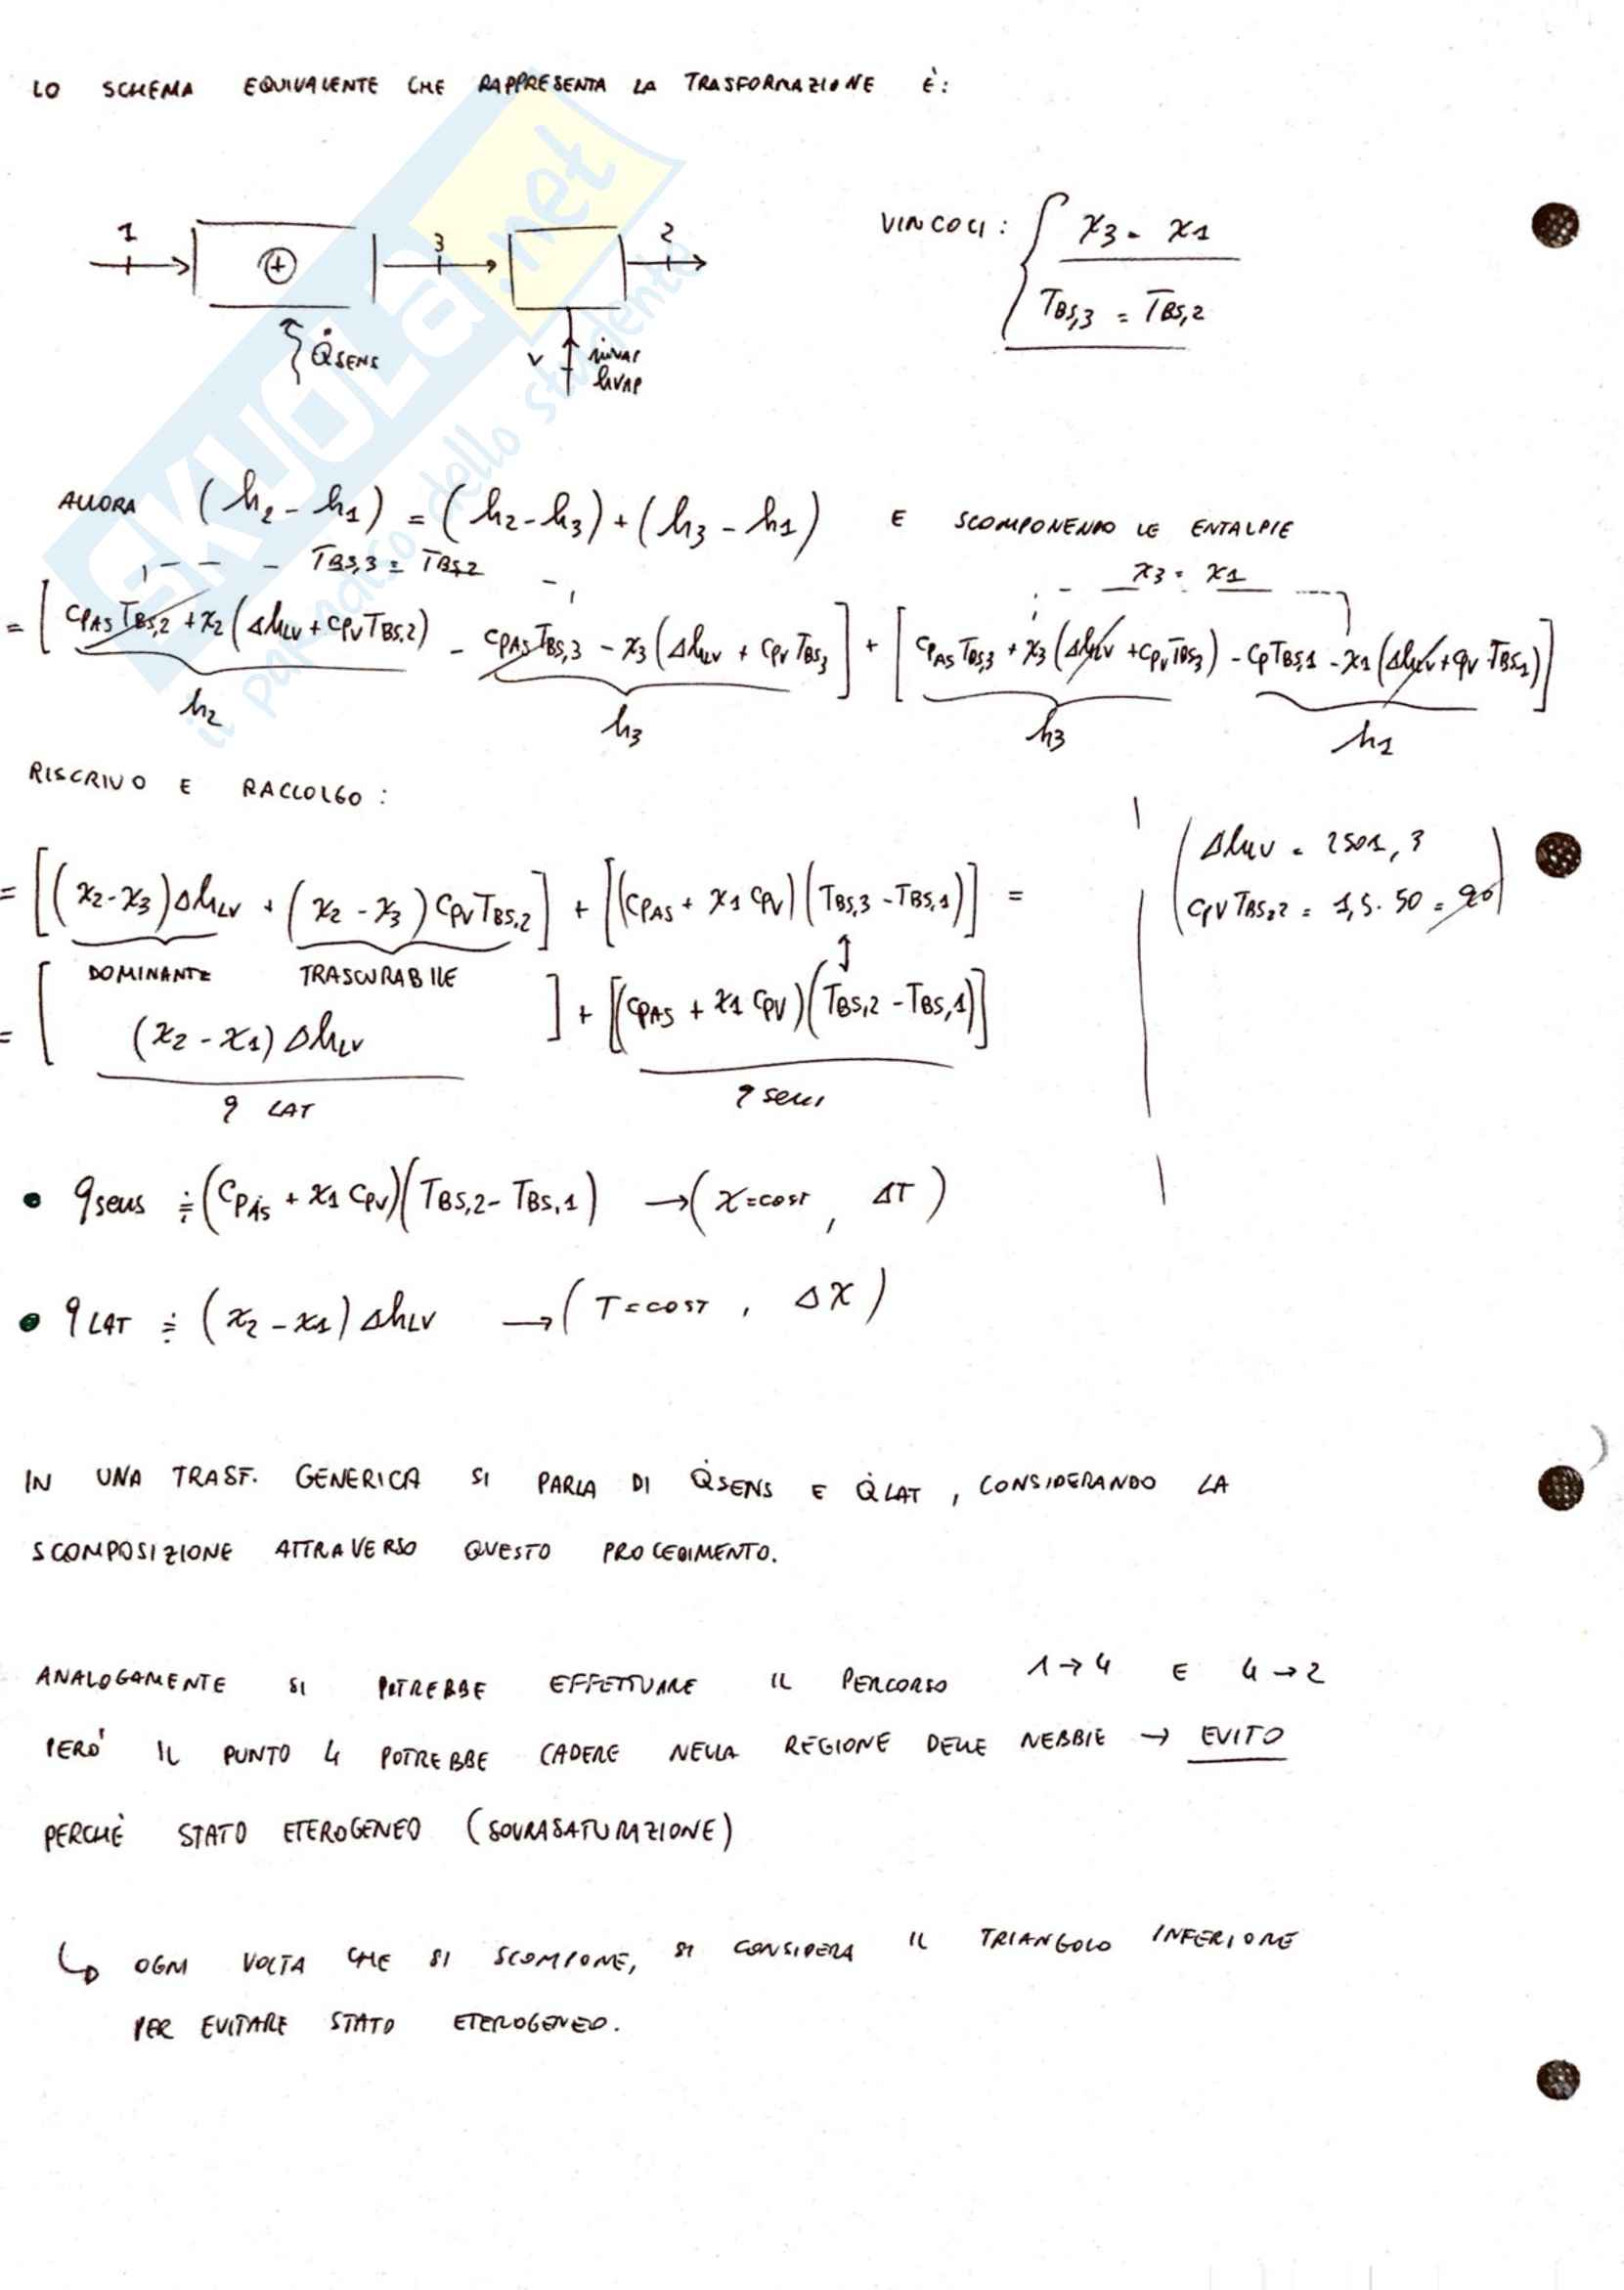 LO SCHEMA EQUIVALENTE CHE RAPPRESENTA LA TRASFORMAZIONE È:
1
3
2
+
Q̇SENS
V
ṁVAP
hVAP
VINCOLI: { x3 = x1
TBS,3 = TBS,2
ALLORA (h2 - h1) = (h2 - h3) + (h3 - h1) E SCOMPONENDO LE ENTALPIE
TBS,3 = TBS,2
x3 = x1
= [cPAS TBS,2 + x2(ΔhLV + cPV TBS,2) - cPAS TBS,3 - x3(ΔhLV + cPV TBS,3] + [cPAS TBS,3 + x3(ΔhLV + cPV TBS3) - cP TBS,1 - x1(ΔhLV + cPV TBS1)]
h2
h3
h3
h1
RISCRIVO E RACCOLGO:
= [(x2 - x3)ΔhLV + (x2 - x3)cPV TBS,2] + [(cPAS + x1 cPV)(TBS,3 - TBS,1)] =
(ΔhLV = 2501,3
cPV TBS,2 = 1,5 · 50 = 90)
DOMINANTE TRASCURABILE
= [(x2 - x1)ΔhLV] + [(cPAS + x1 cPV)(TBS,2 - TBS,1)]
q LAT
q sens
• qsens ≑ (cPAS + x1 cPV)(TBS,2 - TBS,1) → (x=cost, ΔT)
• qLAT ≑ (x2 - x1)ΔhLV → (T=cost, Δx)
IN UNA TRASF. GENERICA SI PARLA DI Q̇SENS E Q̇LAT, CONSIDERANDO LA
SCOMPOSIZIONE ATTRAVERSO QUESTO PROCEDIMENTO.
ANALOGAMENTE SI POTREBBE EFFETTUARE IL PERCORSO 1→4 E 4→2
PERÒ IL PUNTO 4 POTREBBE CADERE NELLA REGIONE DELLE NEBBIE → EVITO
PERCHÈ STATO ETEROGENEO (SOVRASATURAZIONE)
↳ OGNI VOLTA CHE SI SCOMPONE, SI CONSIDERA IL TRIANGOLO INFERIORE
PER EVITARE STATO ETEROGENEO.
SKUOLa.net
il paradiso dello studente